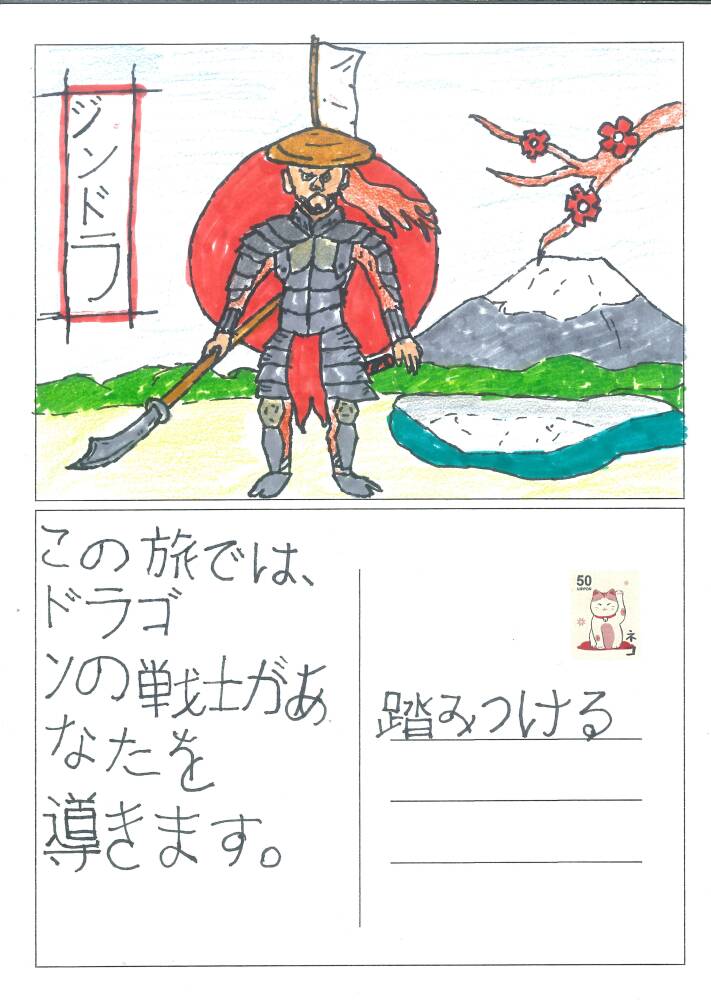 ジンドラ
この旅では、
ドラゴ
ンの戦士があ
なたを
導きます。
50
NIPPON
ネコ
踏みつける